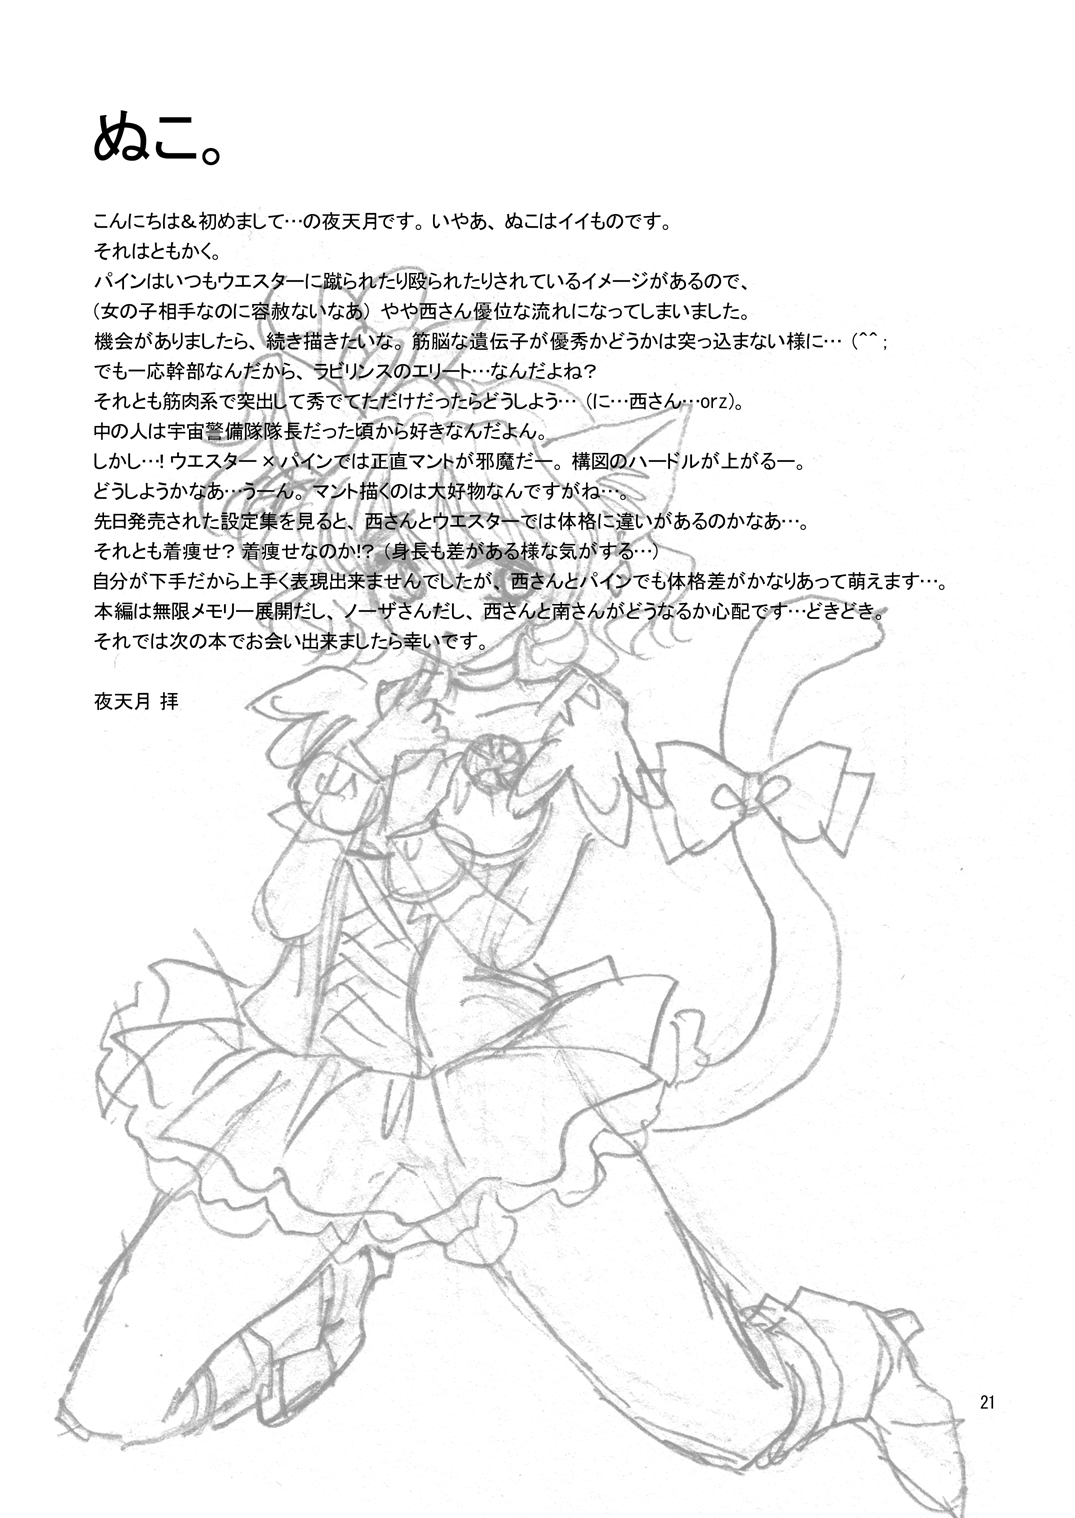 ぬこ。
こんにちは＆初めまして…の夜天月です。いやあ、ぬこはイイものです。
それはともかく。
パインはいつもウエスターに蹴られたり殴られたりされているイメージがあるので、
（女の子相手なのに容赦ないなあ） やや西さん優位な流れになってしまいました。
機会がありましたら、続き描きたいな。筋脳な遺伝子が優秀かどうかは突っ込まない様に…（^^；
でも一応幹部なんだから、ラビリンスのエリート…なんだよね？
それとも筋肉系で突出して秀でてただけだったらどうしよう…（に…西さん…orz）。
中の人は宇宙警備隊隊長だった頃から好きなんだよん。
しかし…！ウエスター×パインでは正直マントが邪魔だー。構図のハードルが上がるー。
どうしようかなあ…うーん。マント描くのは大好物なんですがね…。
先日発売された設定集を見ると、西さんとウエスターでは体格に違いがあるのかなあ…。
それとも着痩せ？着痩せなのか!?（身長も差がある様な気がする…）
自分が下手だから上手く表現出来ませんでしたが、西さんとパインでも体格差がかなりあって萌えます…。
本編は無限メモリー展開だし、ノーザさんだし、西さんと南さんがどうなるか心配です…どきどき。
それでは次の本でお会い出来ましたら幸いです。
夜天月 拝
21